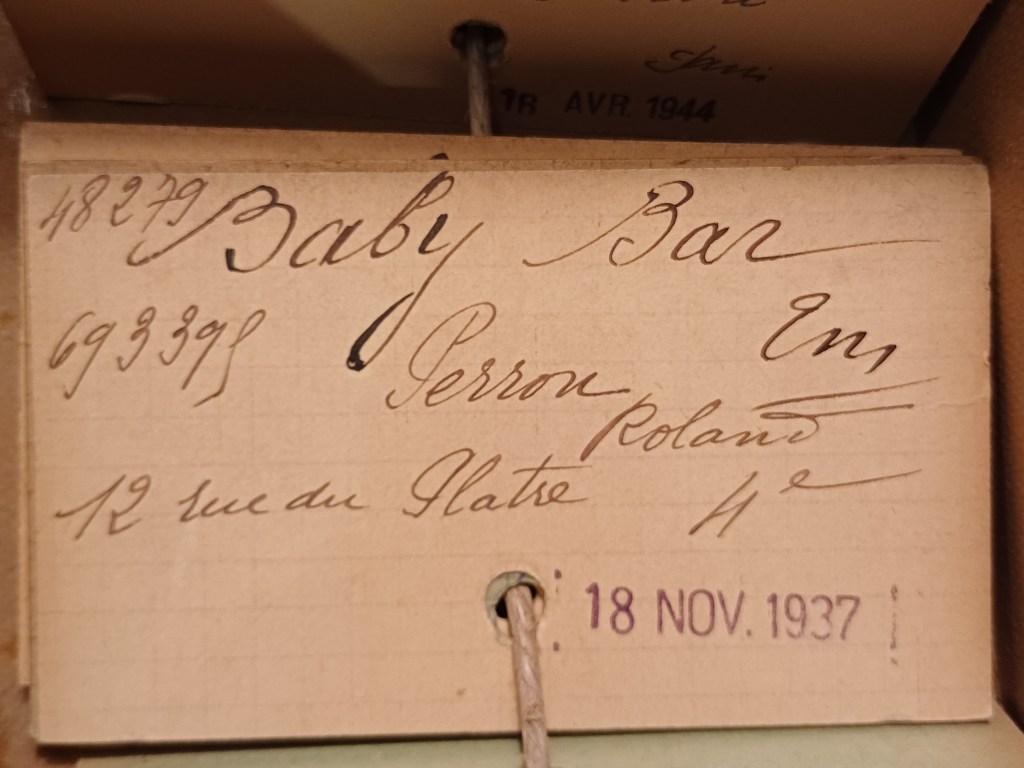 1R AVR. 1944
48279 Baby Bar
693395 Perron Em
Roland
12 rue du Platre 4e
18 NOV. 1937